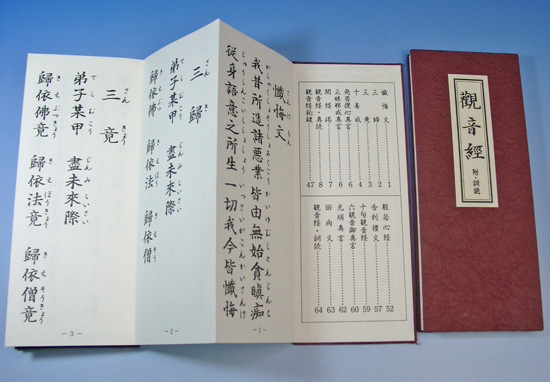 觀音經
附・訓読
懺悔文 1
三歸 2
三竟 3
十善戒 4
発菩提心真言 6
三昧耶戒真言 6
開経偈 7
観音経・真読 8
観音経秘鍵 47
般若心経 52
舎利禮文 57
十句観音経 59
六観音御真言 60
光明真言 62
回向文 63
観音経・訓読 64
懺悔文
我昔所造諸悪業 皆由無始貪瞋痴
從身語意之所生 一切我今皆懺悔
—1—
三歸
弟子某甲 盡未來際
歸依佛 歸依法 歸依僧
—2—
三竟
弟子某甲 盡未來際
歸依佛竟 歸依法竟 歸依僧竟
—3—